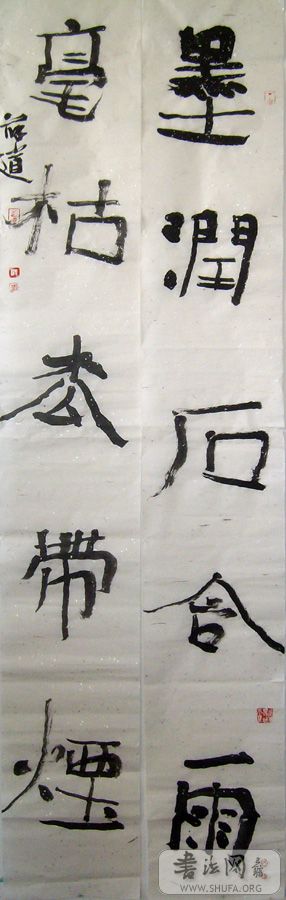 墨潤石含雨
毫枯枩帶煙
道
书法网
WWW.SHUFA.ORG